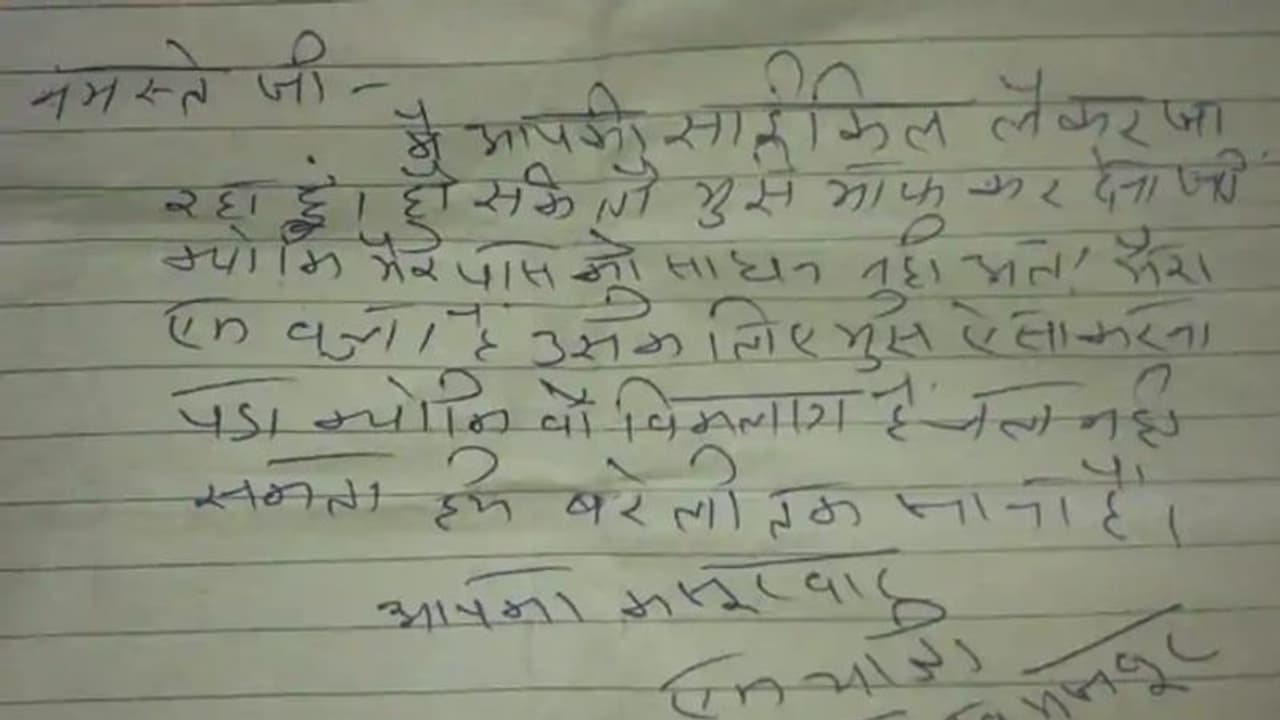 नमस्ते जी -
मै आपकी साईकिल लेकर जा
रहा हूं। हो सके तो मुझे माफ कर देना जी
क्योकि मेरे पास कोई साधन नही मेरा
एक बच्चा है उसके लिए मुझे ऐसा करना
पडा क्योकि वो विकलांग है चल नही
सकता हमे बरेली तक जाना है।
आपका कसूरवार
एक यात्री
मजबूर